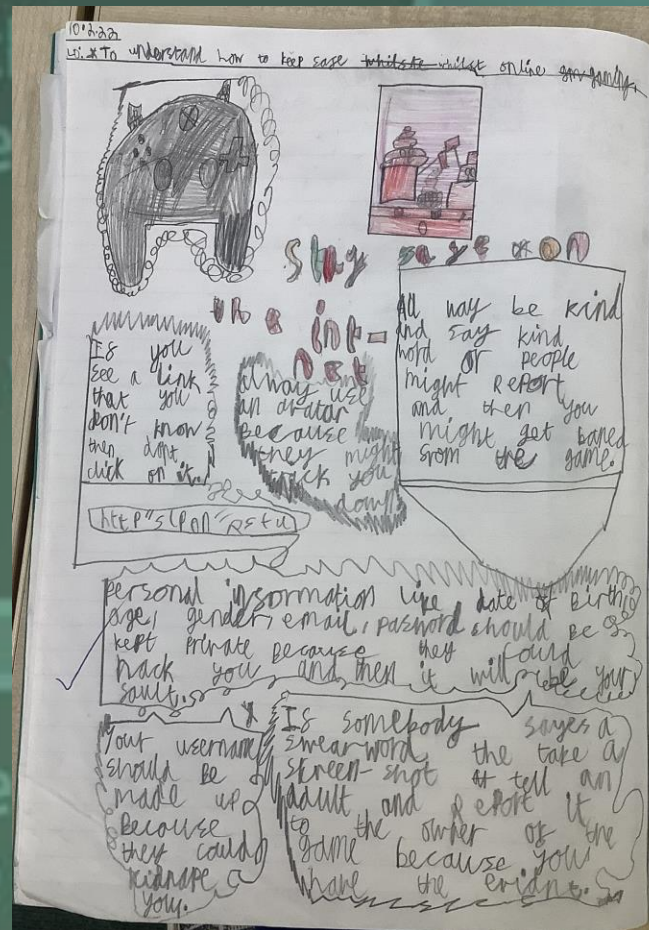 10.2.22
L.i. * To understand how to keep safe whilste whilst online gan gaming.
Stay safe on
the int-
net
If you
see a link
that you
don't know
then dont
click on it.
http"slpnn"
alway use
an avatar
Because
they might
track you
down
All way be kind
and say kind
word or people
might REPort
and then you
might get baned
from the game.
Personal information like date of Birth,
age, gender, email, pasword should be
kept Private Because they could
hack you and then it will be your
fault.
Your username
should be
made up
Because
they could
kidnape
you.
If somebody sayes a
swearword the take a
skreen-shot tell an
adult and REPort it
to the owner of the
game because you
have the evidnt.